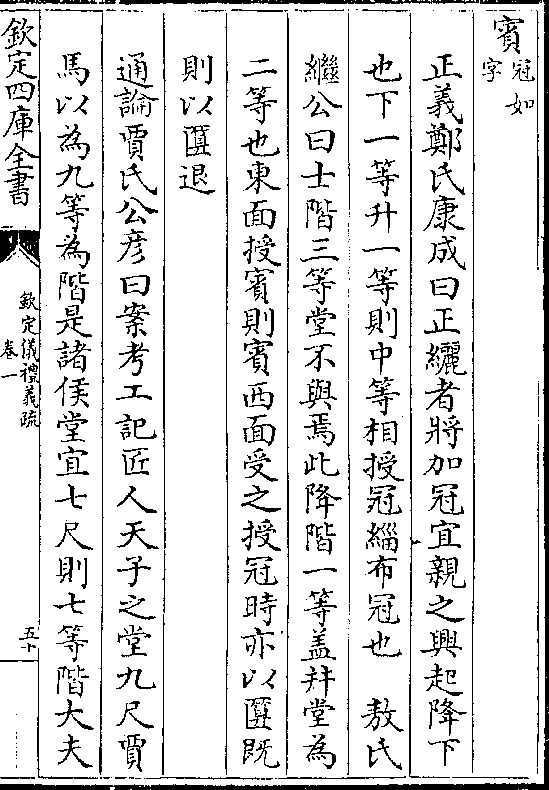 賓冠如字
正義鄭氏康成曰正纚者將加冠宜親之興起降下
也下一等升一等則中等相授冠緇布冠也　敖氏
繼公曰士階三等堂不與焉此降階一等盖并堂為
二等也東面授賓則賓西面受之授冠時亦以匴既
則以匴退
通論賈氏公彦曰案考工記匠人天子之堂九尺賈
馬以為九等為階是諸侯堂宜七尺則七等階大夫
欽定四庫全書
欽定儀禮義疏
卷一
五十